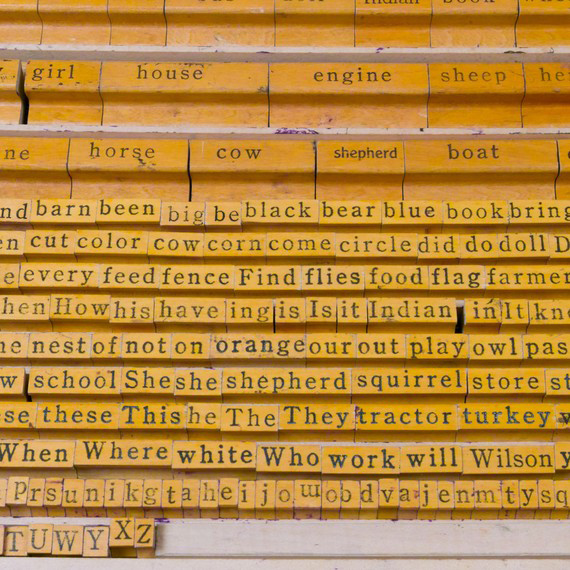 Indian book
girl house engine sheep
horse cow shepherd boat
barn been big be black bear blue book bring
cut color cow corn come circle did do doll D
every feed fence Find flies food flag farmer
How his have ing is Is it Indian in It
nest of not on orange our out play owl
school She she shepherd squirrel store
these This he The They tractor turkey
When Where white Who work will Wilson
p r s u n i k g t a h e i j o w o b d v a j e n m t y s q
T U W Y X Z